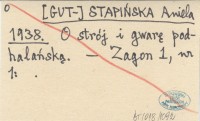 0
[GUT-] STAPIŃSKA Aniela
1938. O strój i gwarę pod-
halańską. — Zagon 1, nr
1: